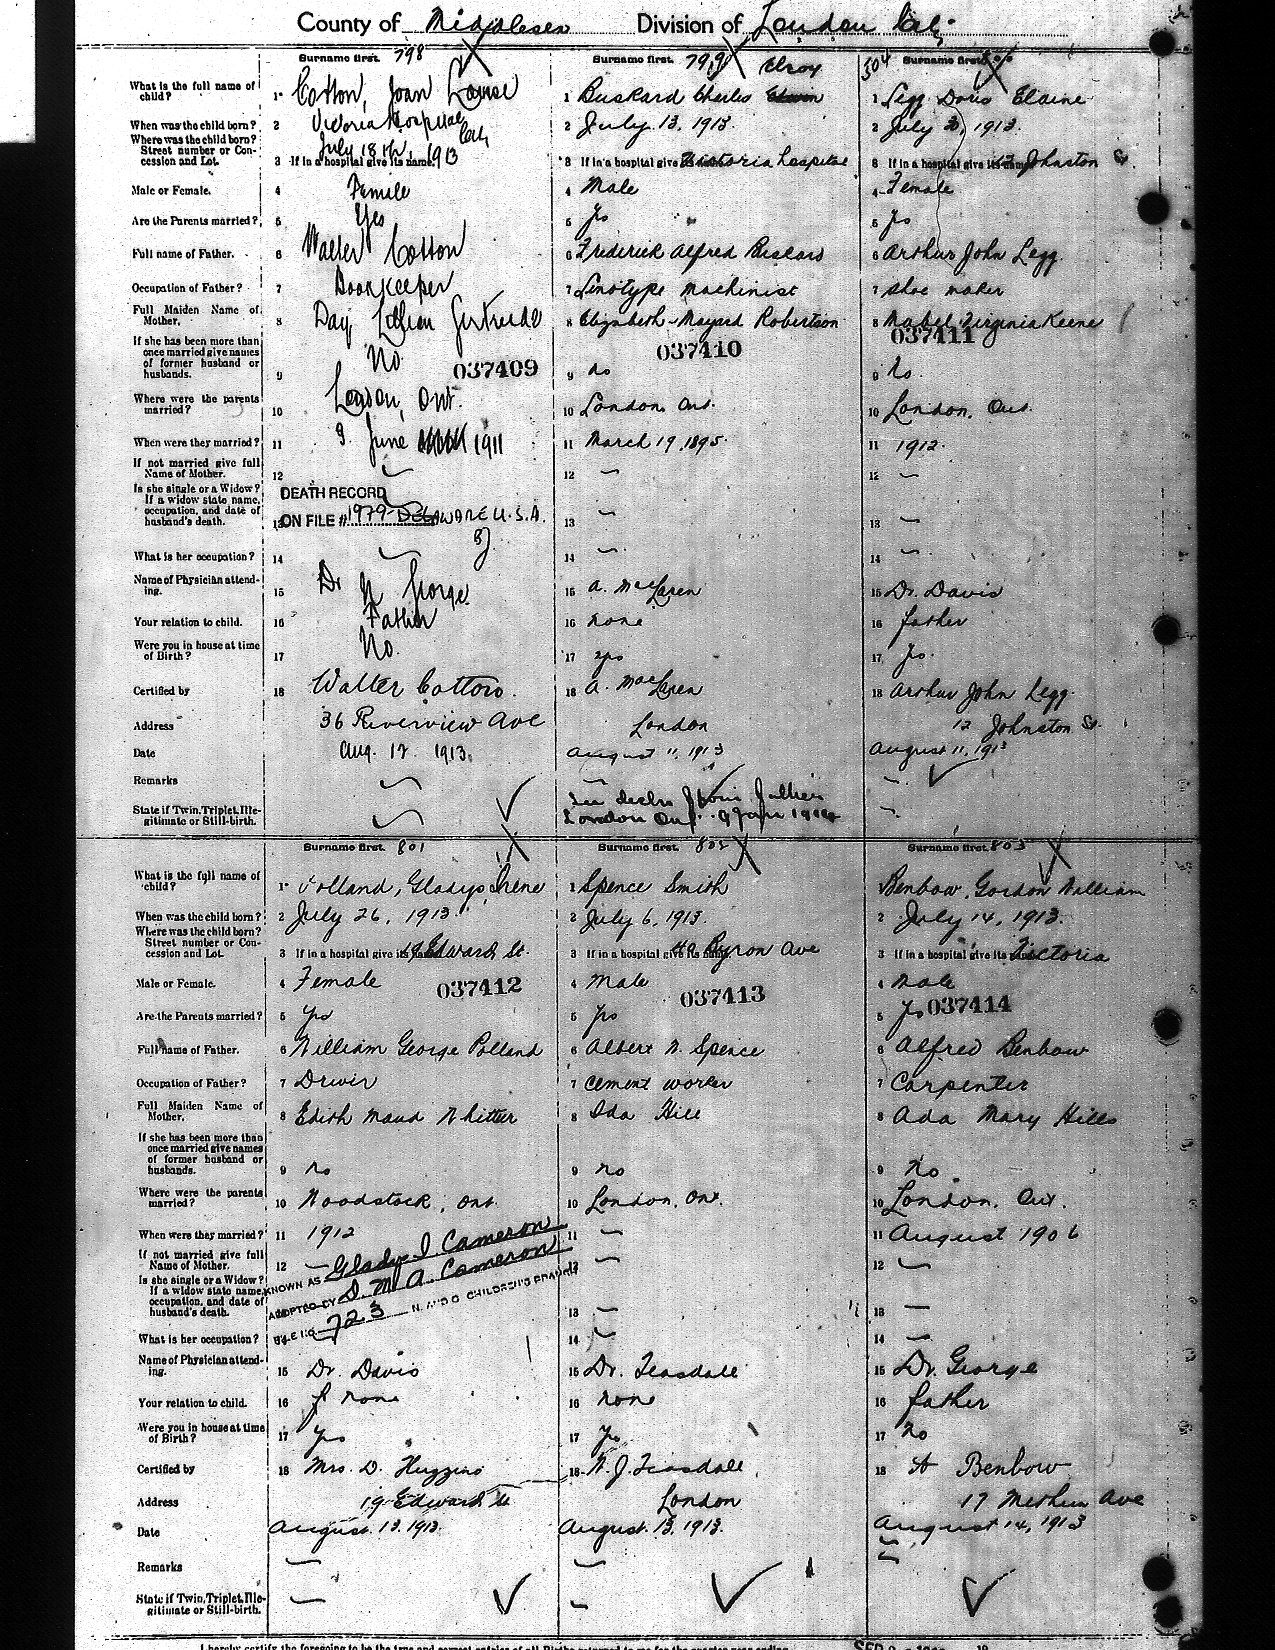 County of Middlesex Division of London City
Surname first. 798
Surname first. 799
Surname first. 800
304
What is the full name of child?
1 Cotton, Joan Louise
1 Buskard Charles Edwin Elroy
1 Legg Doris Elaine
When was the child born?
2 Victoria Hospital City
2 July 13, 1913.
2 July 3, 1913.
Where was the child born?
Street number or Concession and Lot.
July 18th, 1913
3 If in a hospital give its name.
3 If in a hospital give its name Victoria hospital
3 If in a hospital give its name 12 Johnston St
Male or Female.
4 Female
4 Male
4 Female
Are the Parents married?
5 Yes
5 yes
5 yes
Full name of Father.
6 Walter Cotton
6 Frederick Alfred Buskard
6 Arthur John Legg
Occupation of Father?
7 Bookkeeper
7 Linotype machinist
7 shoe maker
Full Maiden Name of Mother.
8 Day, Lillian Gertrude
8 Elizabeth Robertson
8 Mabel Virginia Keene
037409
037410
037411
If she has been more than once married give names of former husband or husbands.
9 No
9 no
9 no.
Where were the parents married?
10 London, Ont.
10 London, Ont.
10 London, Ont.
When were they married?
11 9 June 1911
11 March 19, 1895.
11 1912.
If not married give full Name of Mother.
12
12 —
12 —
Is she single or a Widow? If a widow state name, occupation, and date of husband's death.
DEATH RECORD
ON FILE # 1979 DELAWARE U.S.A.
13
13 —
13 —
What is her occupation?
14
14 —
14 —
Name of Physician attending.
15 Dr George
15 A. MacLaren
15 Dr. Davis
Your relation to child.
16 Father
16 none
16 father
Were you in house at time of Birth?
17 No.
17 yes
17 yes.
Certified by
18 Walter Cotton.
18 A. MacLaren
18 Arthur John Legg.
Address
36 Riverview Ave
London
12 Johnston St.
Date
Aug. 12 1913.
August 11, 1913
August 11, 1913
Remarks
State if Twin, Triplet, Illegitimate or Still-birth.
London Ont. 9 Jan
Surname first. 801
Surname first. 802
Surname first. 803
What is the full name of child?
1 Polland, Gladys Irene
1 Spence Smith
Benbow, Gordon William
When was the child born?
2 July 26, 1913.
2 July 6, 1913.
2 July 14, 1913.
Where was the child born?
Street number or Concession and Lot.
3 If in a hospital give its name 19 Edward St.
3 If in a hospital give its name. Byron Ave
3 If in a hospital give its name Victoria
Male or Female.
4 Female
4 Male
4 Male
037412
037413
037414
Are the Parents married?
5 yes
5 yes
5 yes
Full name of Father.
6 William George Polland
6 Albert W. Spence
6 Alfred Benbow
Occupation of Father?
7 Driver
7 Cement worker
7 Carpenter
Full Maiden Name of Mother.
8 Edith Maud Whitter
8 Ida Hill
8 Ada Mary Hills
If she has been more than once married give names of former husband or husbands.
9 no
9 no
9 no
Where were the parents married?
10 Woodstock, Ont.
10 London, Ont.
10 London, Ont.
When were they married?
11 1912
11 —
11 August 1906
If not married give full Name of Mother.
12 —
12 —
12 —
KNOWN AS Gladys I. Cameron
ADOPTED BY D. M. A. Cameron
FILE NO. 723
Is she single or a Widow? If a widow state name, occupation, and date of husband's death.
13 —
13 —
What is her occupation?
14
14 —
14 —
Name of Physician attending.
15 Dr. Davis
15 Dr. Teasdale
15 Dr. George
Your relation to child.
16 none
16 none
16 father
Were you in house at time of Birth?
17 yes
17 yes
17 no
Certified by
18 Mrs. D. Huggins
18 W. J. Teasdale.
18 A Benbow
Address
19 Edward St
London
17 Methuen Ave
Date
August. 13. 1913.
August. 13. 1913.
August 14, 1913
Remarks
State if Twin, Triplet, Illegitimate or Still-birth.